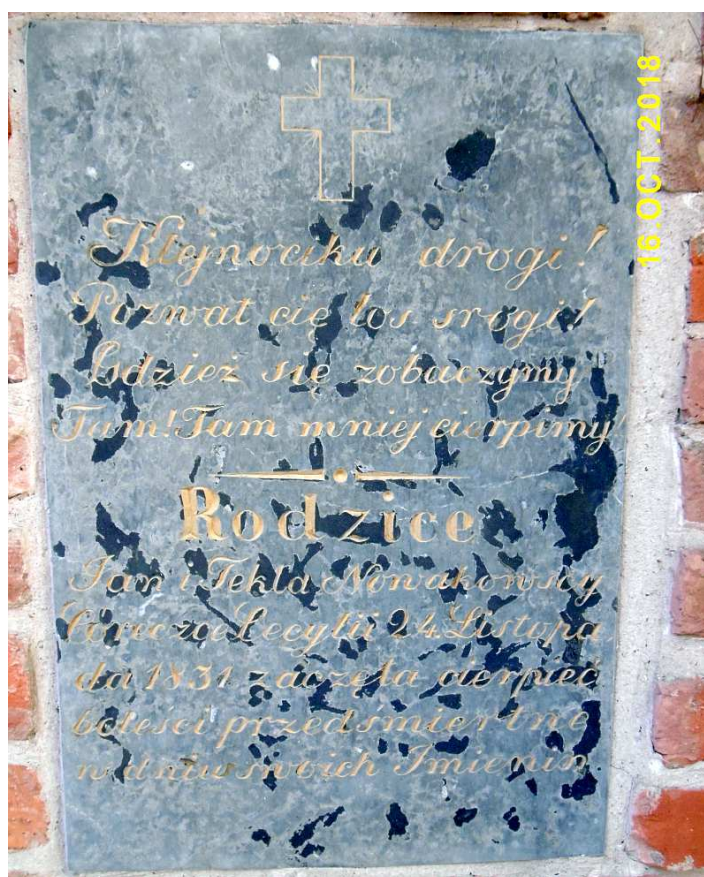 Klejnociku drogi!
Pozwał cię los srogi!
Gdzież się zobaczymy
Tam! Tam mniej cierpimy!
Rodzice
Jan i Tekla Nowakowscy
Córeczce Cecylii 24 Listopa
da 1831 zaczęła cierpieć
boleści przedśmiertne
w dniu swoich Imienin
16.OCT.2018